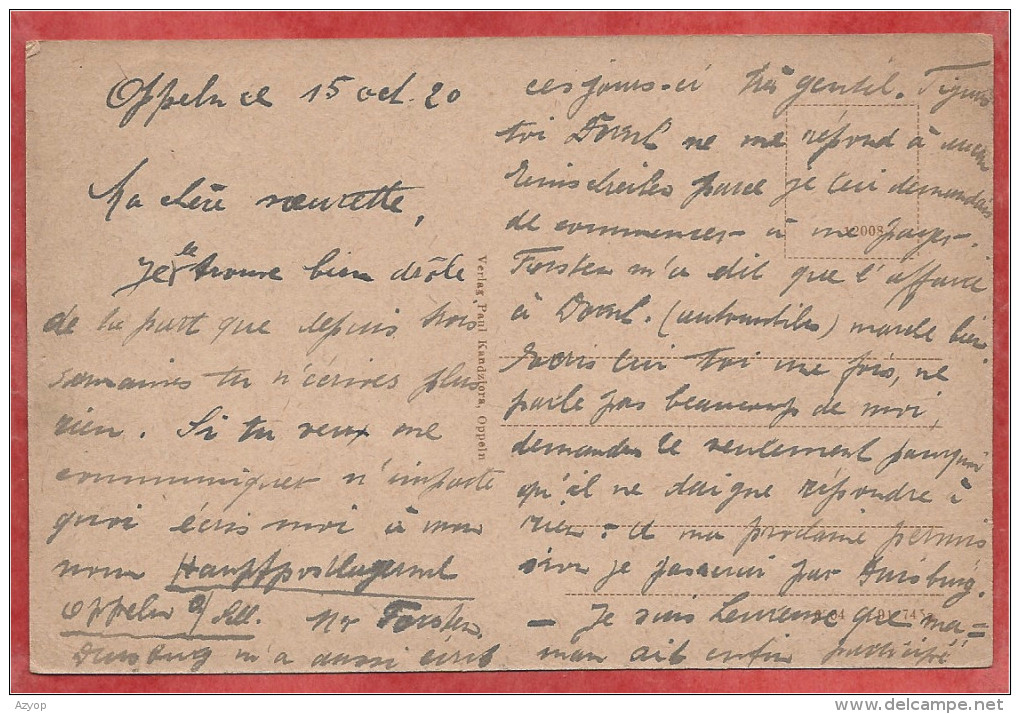 Oppeln ce 15 oct. 20
Ma chère sœurette,
Je te trouve bien drôle
de ta part que depuis trois
semaines tu n'écrives plus
rien. Si tu veux me
communiquer n'importe
quoi écris moi à mon
nom Hauptpostlagernd
Oppeln o/Sll. Mr Forsten.
Duisburg m'a aussi écrit
ces jours-ci très gentil. Figure
toi Dorsl. ne me répond à aucun
parce je lui demandais
de commencer à me payer.
Forsten m'a dit que l'affaire
à Dorsl. (automobiles) marche bien.
Ecris lui toi une fois, ne
parle pas beaucoup de moi,
demandes le seulement pourquoi
qu'il ne daigne répondre à
rien. A ma prochaine permis
sion je passerai par Duisburg.
— Je suis heureuse que ma=
man ait enfin participé
Verlag Paul Kandziora, Oppeln
12008
Azyop
www.delcampe.net